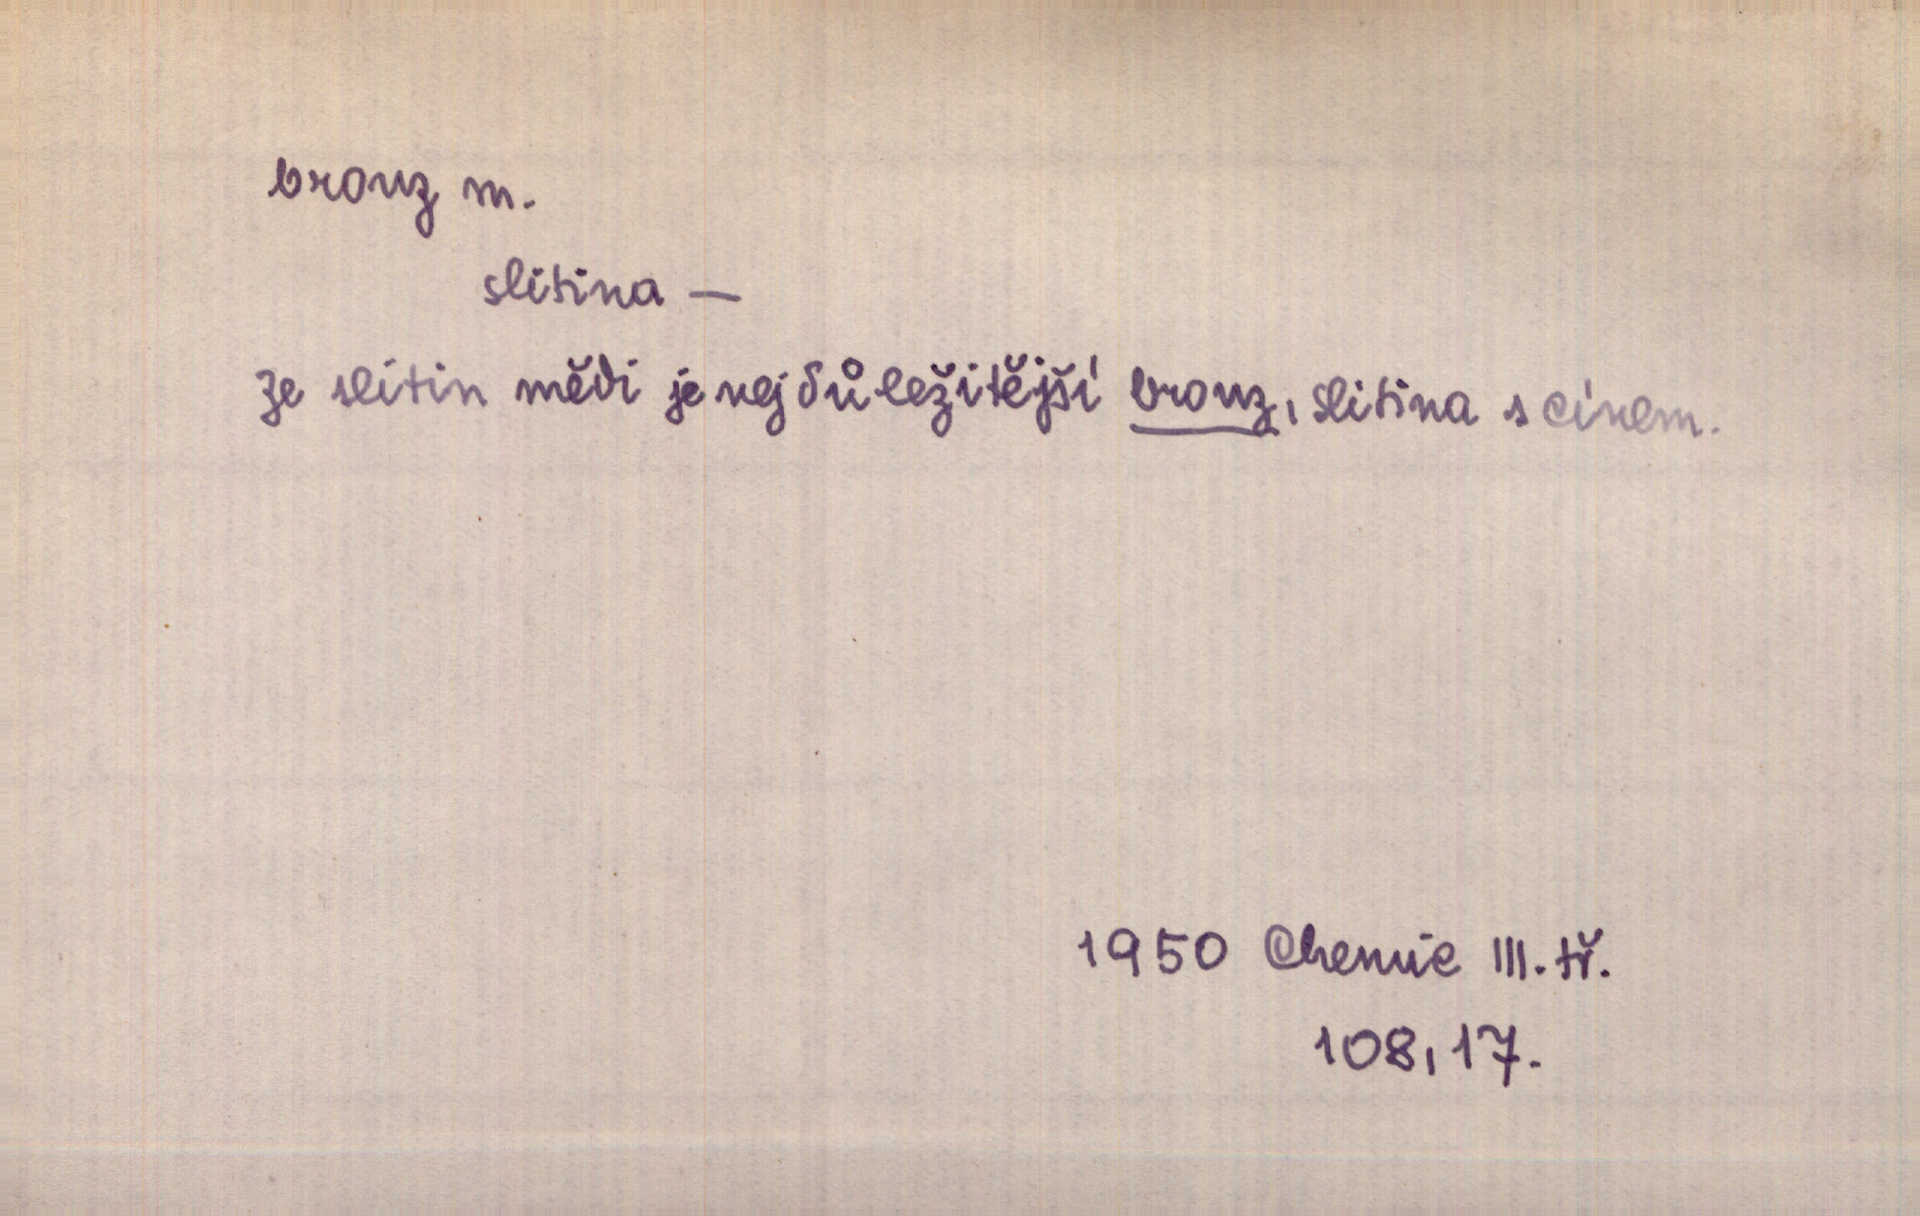 bronz m.
slitina —
Ze slitin mědi je nejdůležitější bronz, slitina s cínem.
1950 Chemie III. tř.
108, 17.